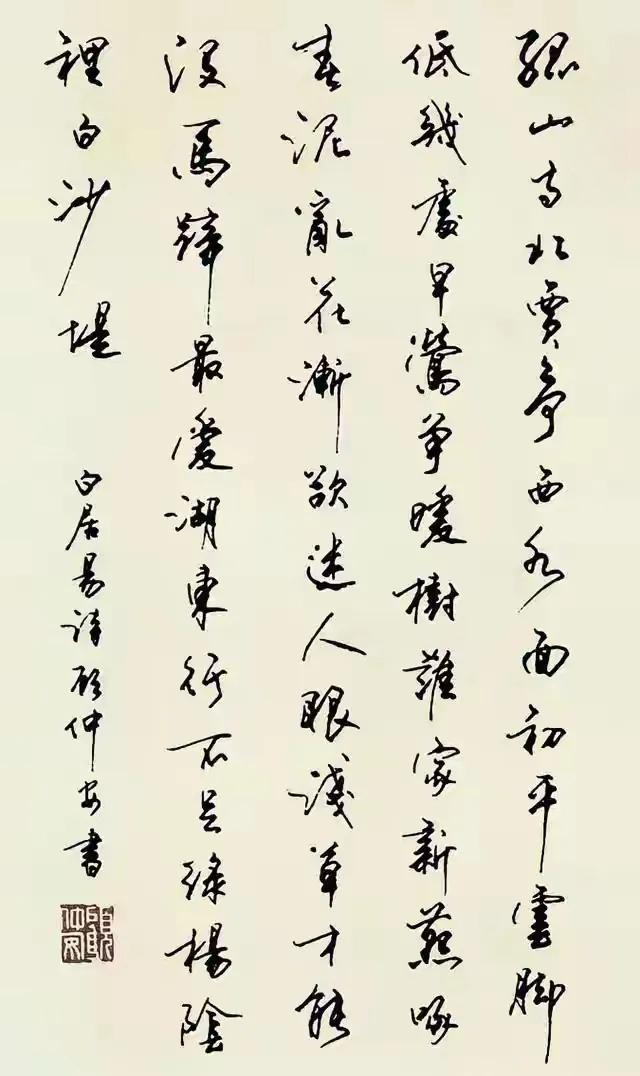 孤山寺北賈亭西水面初平雲脚
低幾處早鶯爭暖樹誰家新燕啄
春泥亂花漸欲迷人眼淺草才能
沒馬蹄最愛湖東行不足綠楊陰
裡白沙堤
白居易詩顧仲安書
顧仲安